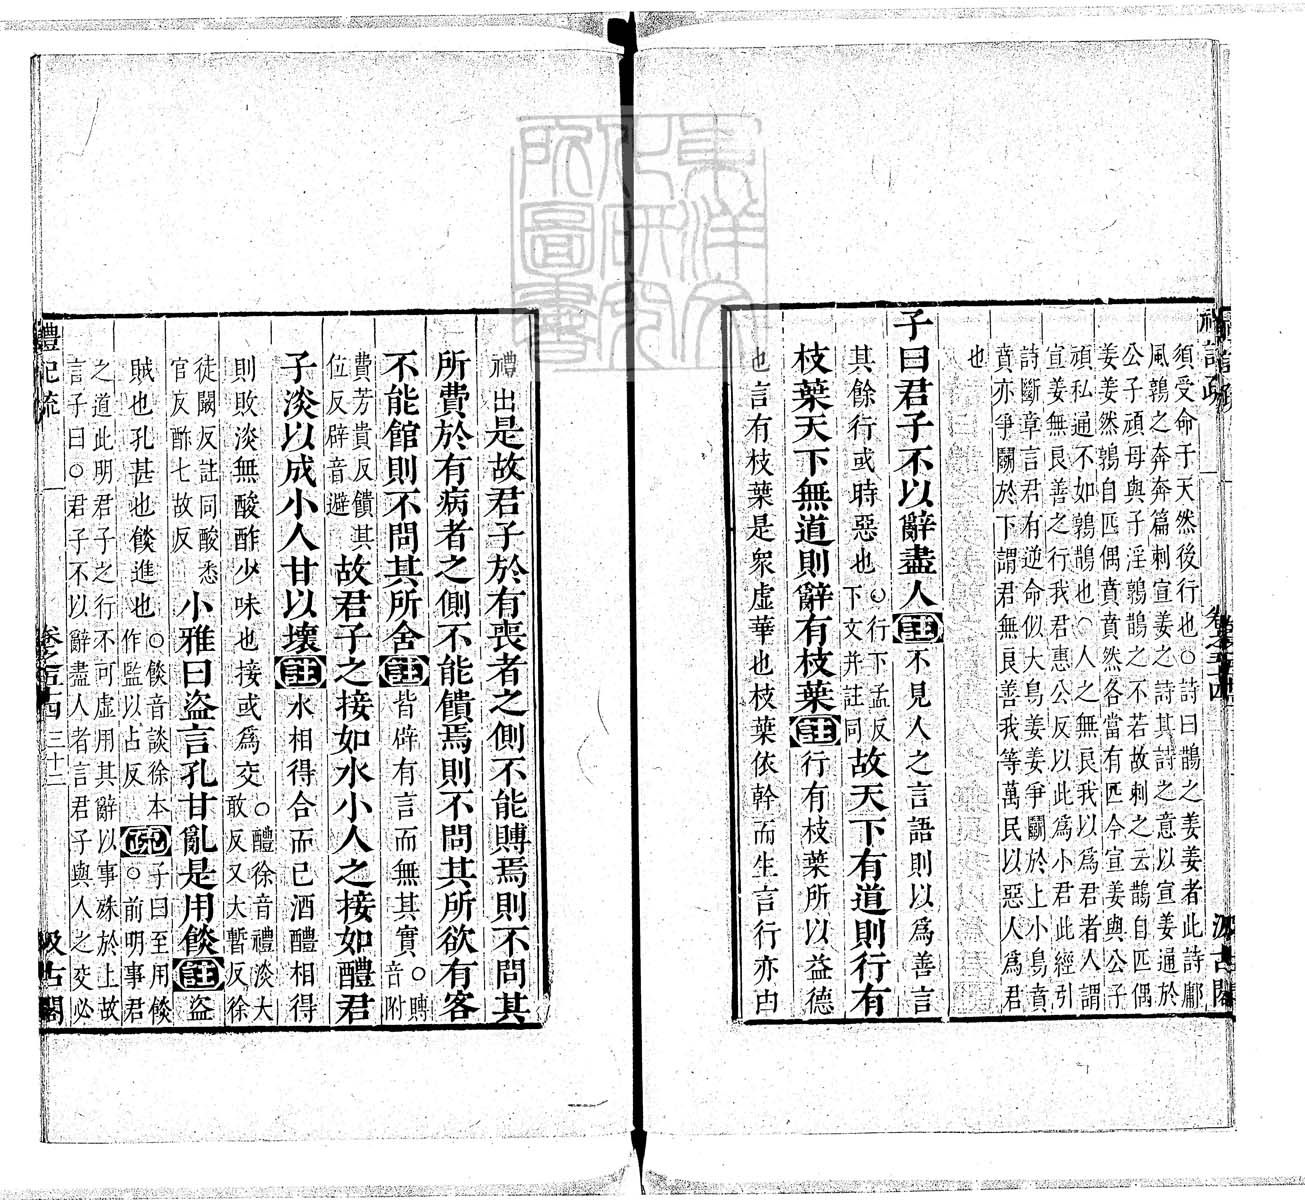 禮記疏
卷之五十四
汲古閣
須受命于天然後行也○詩曰鵲之姜姜者此詩鄘
風鶉之奔奔篇刺宣姜之詩其詩之意以宣姜通於
公子頑母與子淫鶉鵲之不若故刺之云鵲自匹偶
姜姜然鶉自匹偶賁賁然各當有匹今宣姜與公子
頑私通不如鶉鵲也○人之無良我以爲君者人謂
宣姜無良善之行我君惠公反以此爲小君此經引
詩斷章言君有逆命似大鳥姜姜爭鬭於上小鳥賁
賁亦爭鬭於下謂君無良善我等萬民以惡人爲君
也
子曰君子不以辭盡人註不見人之言語則以爲善言
其餘行或時惡也○行下孟反下文并註同故天下有道則行有
枝葉天下無道則辭有枝葉註行有枝葉所以益德
也言有枝葉是衆虛華也枝葉依幹而生言行亦由
禮出是故君子於有喪者之側不能賻焉則不問其
所費於有病者之側不能饋焉則不問其所欲有客
不能館則不問其所舍註皆辟有言而無其實○賻音附
費芳貴反饋其位反辟音避故君子之接如水小人之接如醴君
子淡以成小人甘以壞註水相得合而已酒醴相得
則敗淡無酸酢少味也接或爲交○醴徐音禮淡大敢反又大暫反徐
徒闞反註同酸悉官反酢七故反小雅曰盜言孔甘亂是用餤註盜
賊也孔甚也餤進也○餤音談徐本作監以占反疏子曰至用餤○前明事君
之道此明君子之行不可虛用其辭以事殊於上故
言子曰○君子不以辭盡人者言君子與人之交必
禮記疏
卷之五十四
三十二
汲古閣